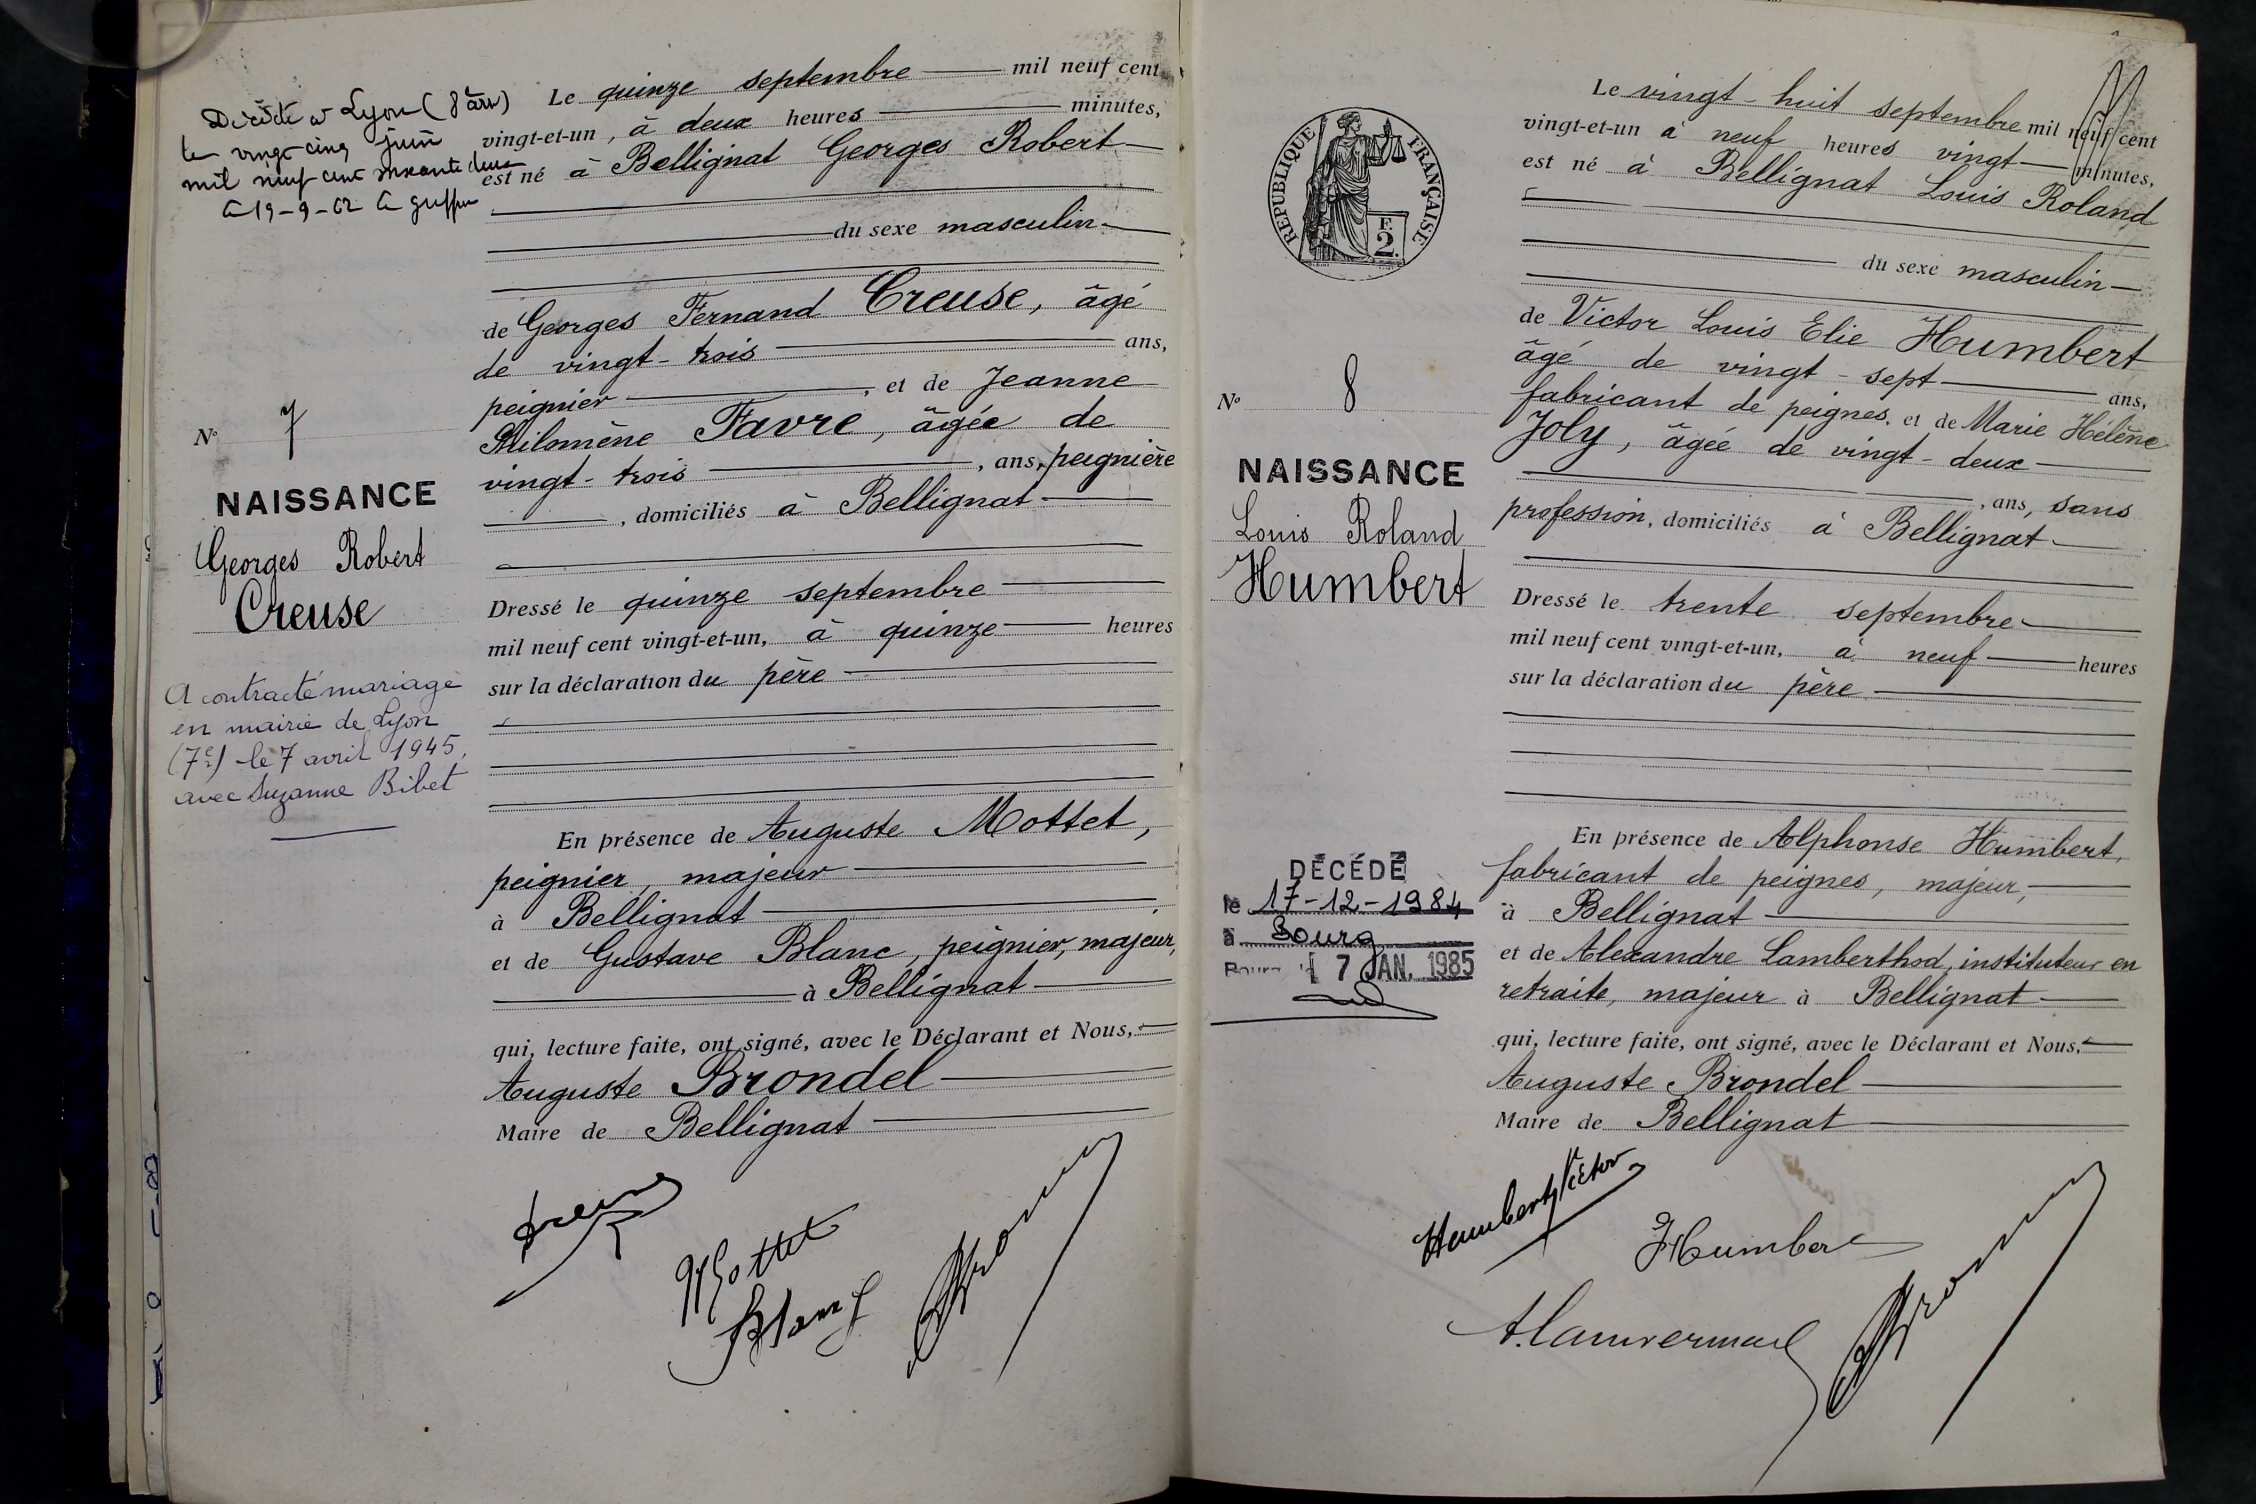 Décédé à Lyon (8 arr)
le vingt cinq juin
mil neuf cent soixante deux
Le 19-9-62 Le greffier
Le quinze septembre mil neuf cent
vingt-et-un, à deux heures minutes,
est né à Bellignat Georges Robert
du sexe masculin
de Georges Fernand Creuse, âgé
de vingt-trois ans,
peignier, et de Jeanne
Philomène Favre, âgée de
vingt-trois, ans, peignière
, domiciliés à Bellignat
Nº 7
NAISSANCE
Georges Robert
Creuse
A contracté mariage
en mairie de Lyon
(7e) le 7 avril 1945,
avec Suzanne Bibet
Dressé le quinze septembre
mil neuf cent vingt-et-un, à quinze heures
sur la déclaration du père
En présence de Auguste Mottet,
peignier, majeur
à Bellignat
et de Gustave Blanc, peignier, majeur,
à Bellignat
qui, lecture faite, ont signé, avec le Déclarant et Nous,
Auguste Brondel
Maire de Bellignat
Creuse
Mottet
Blanc G
RÉPUBLIQUE FRANÇAISE
F.
2.
Le vingt-huit septembre mil neuf cent
vingt-et-un à neuf heures vingt minutes,
est né à Bellignat Louis Roland
du sexe masculin
de Victor Louis Elie Humbert
âgé de vingt-sept ans,
fabricant de peignes, et de Marie Hélène
Joly, âgée de vingt-deux
, ans, sans
profession, domiciliés à Bellignat
Nº 8
NAISSANCE
Louis Roland
Humbert
Dressé le trente septembre
mil neuf cent vingt-et-un, à neuf heures
sur la déclaration du père
DÉCÉDÉ
le 17-12-1984
à Bourg
Bourg le 7 JAN. 1985
En présence de Alphonse Humbert,
fabricant de peignes, majeur,
à Bellignat
et de Alexandre Lamberthod, instituteur en
retraite, majeur à Bellignat
qui, lecture faite, ont signé, avec le Déclarant et Nous,
Auguste Brondel
Maire de Bellignat
Humbert Victor
Humbert